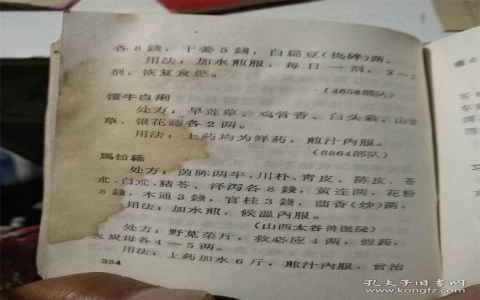 各8錢，干姜5錢，白扁豆(捣碎)两，
用法：加水煎服，每日一剂，2—
剂，恢复食慾。
(4658部队)
牛白痢
处方：旱莲草、鸡骨香、白头翁、山甘
草、银花藤各2两。
用法：上药均为鲜药，煎汁内服。
(6864部队)
馬拉稀
处方：茵陈两半，川朴、青皮、陈皮、苍
朮、白朮、豬苓、泽泻各8錢，黄连两，花粉
8錢，木通3錢，官桂3錢，茴香(炒)两。
用法：加水煎，候溫内服。
(山西太谷兽医院)
处方：野苋菜斤，救必应4两，假药，
炭母各4—5两。
用法：上药加水6斤，煎汁内服，曾治
334
孔夫子旧书网
www.kongfz.com